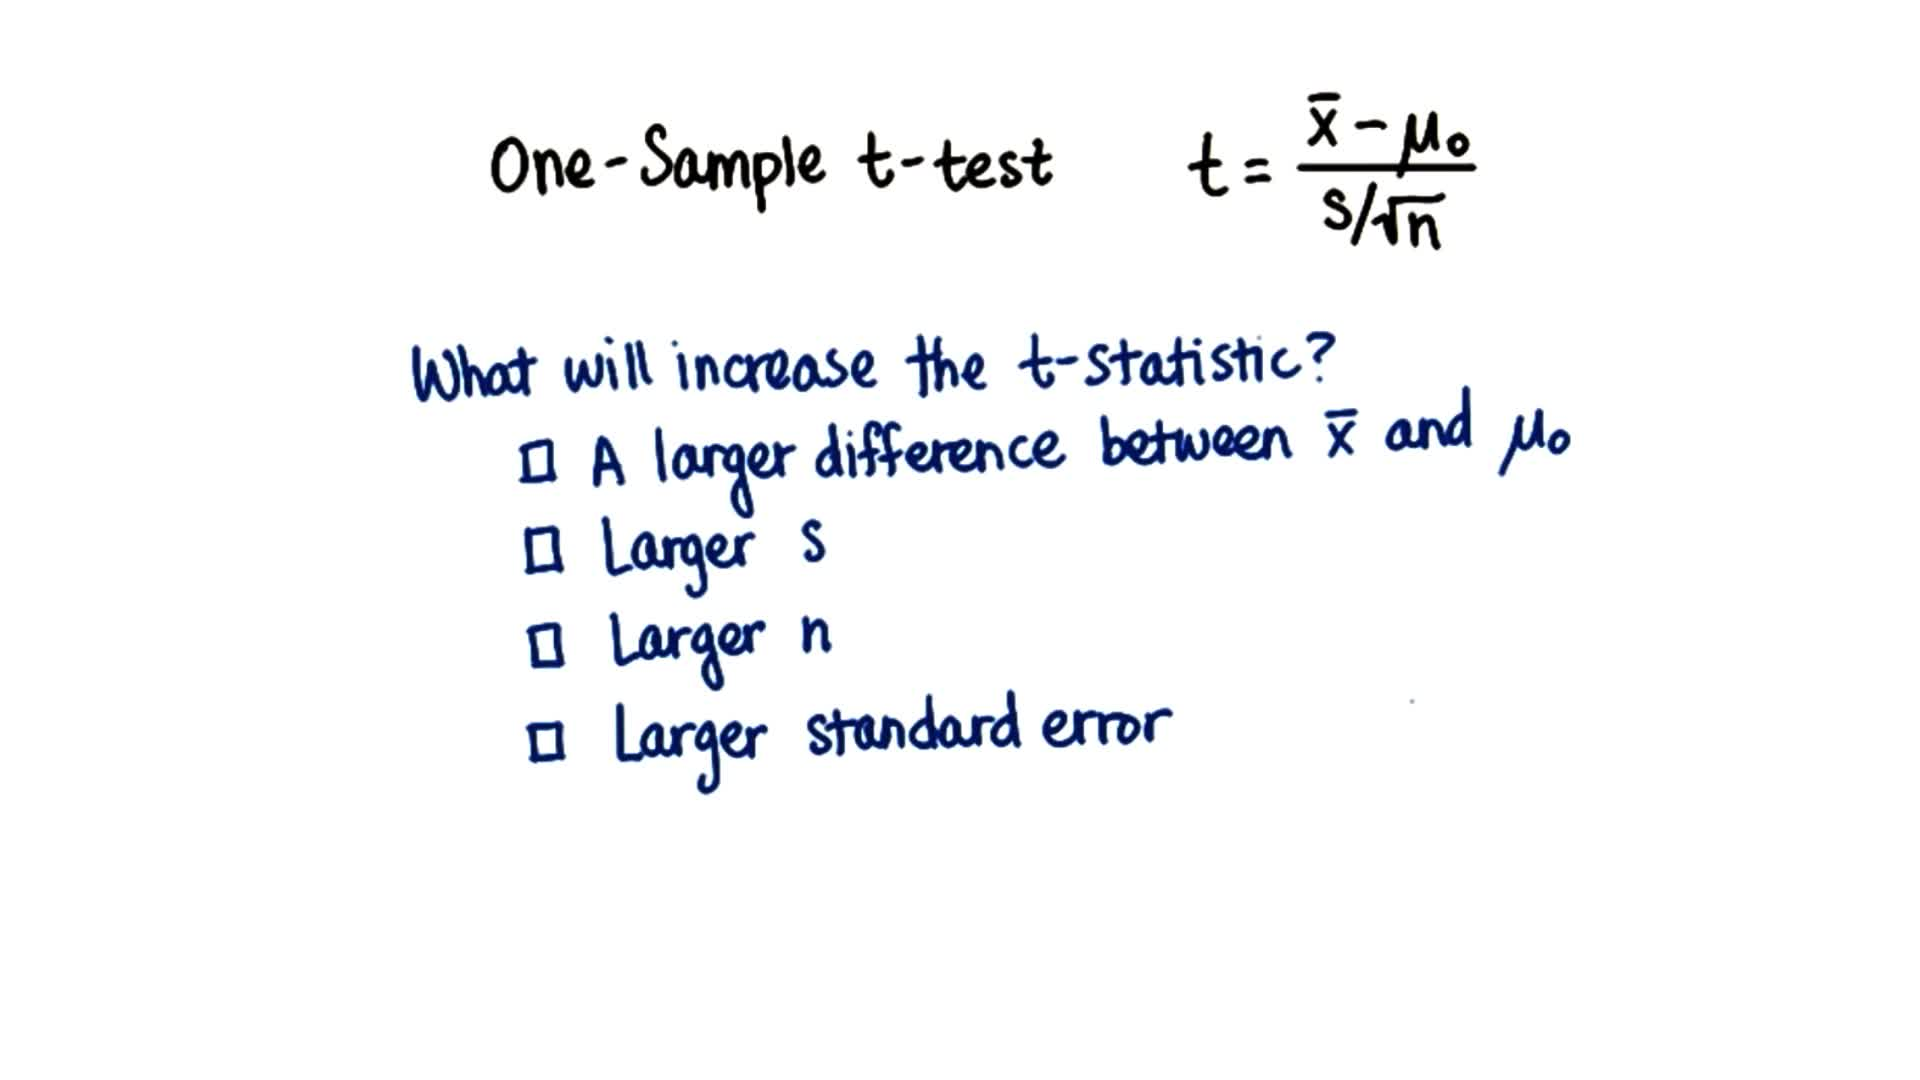 One-Sample t-test t = (x̄ - μ₀) / (s/√n)
What will increase the t-statistic?
□ A larger difference between x̄ and μ₀
□ Larger s
□ Larger n
□ Larger standard error